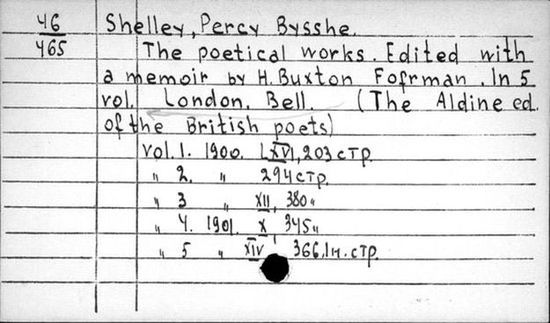 46
465
Shelley, Percy Bysshe.
The poetical works. Edited with
a memoir by H. Buxton Fofrman. In 5
vol. London, Bell. (The Aldine ed.
of the British poets)
vol. 1. 1900. LXVI, 203 стр.
" 2. " 294 стр.
" 3 " XII, 380 "
" 4. 1901. X 345 "
" 5 " XIV 366, 1н. стр.